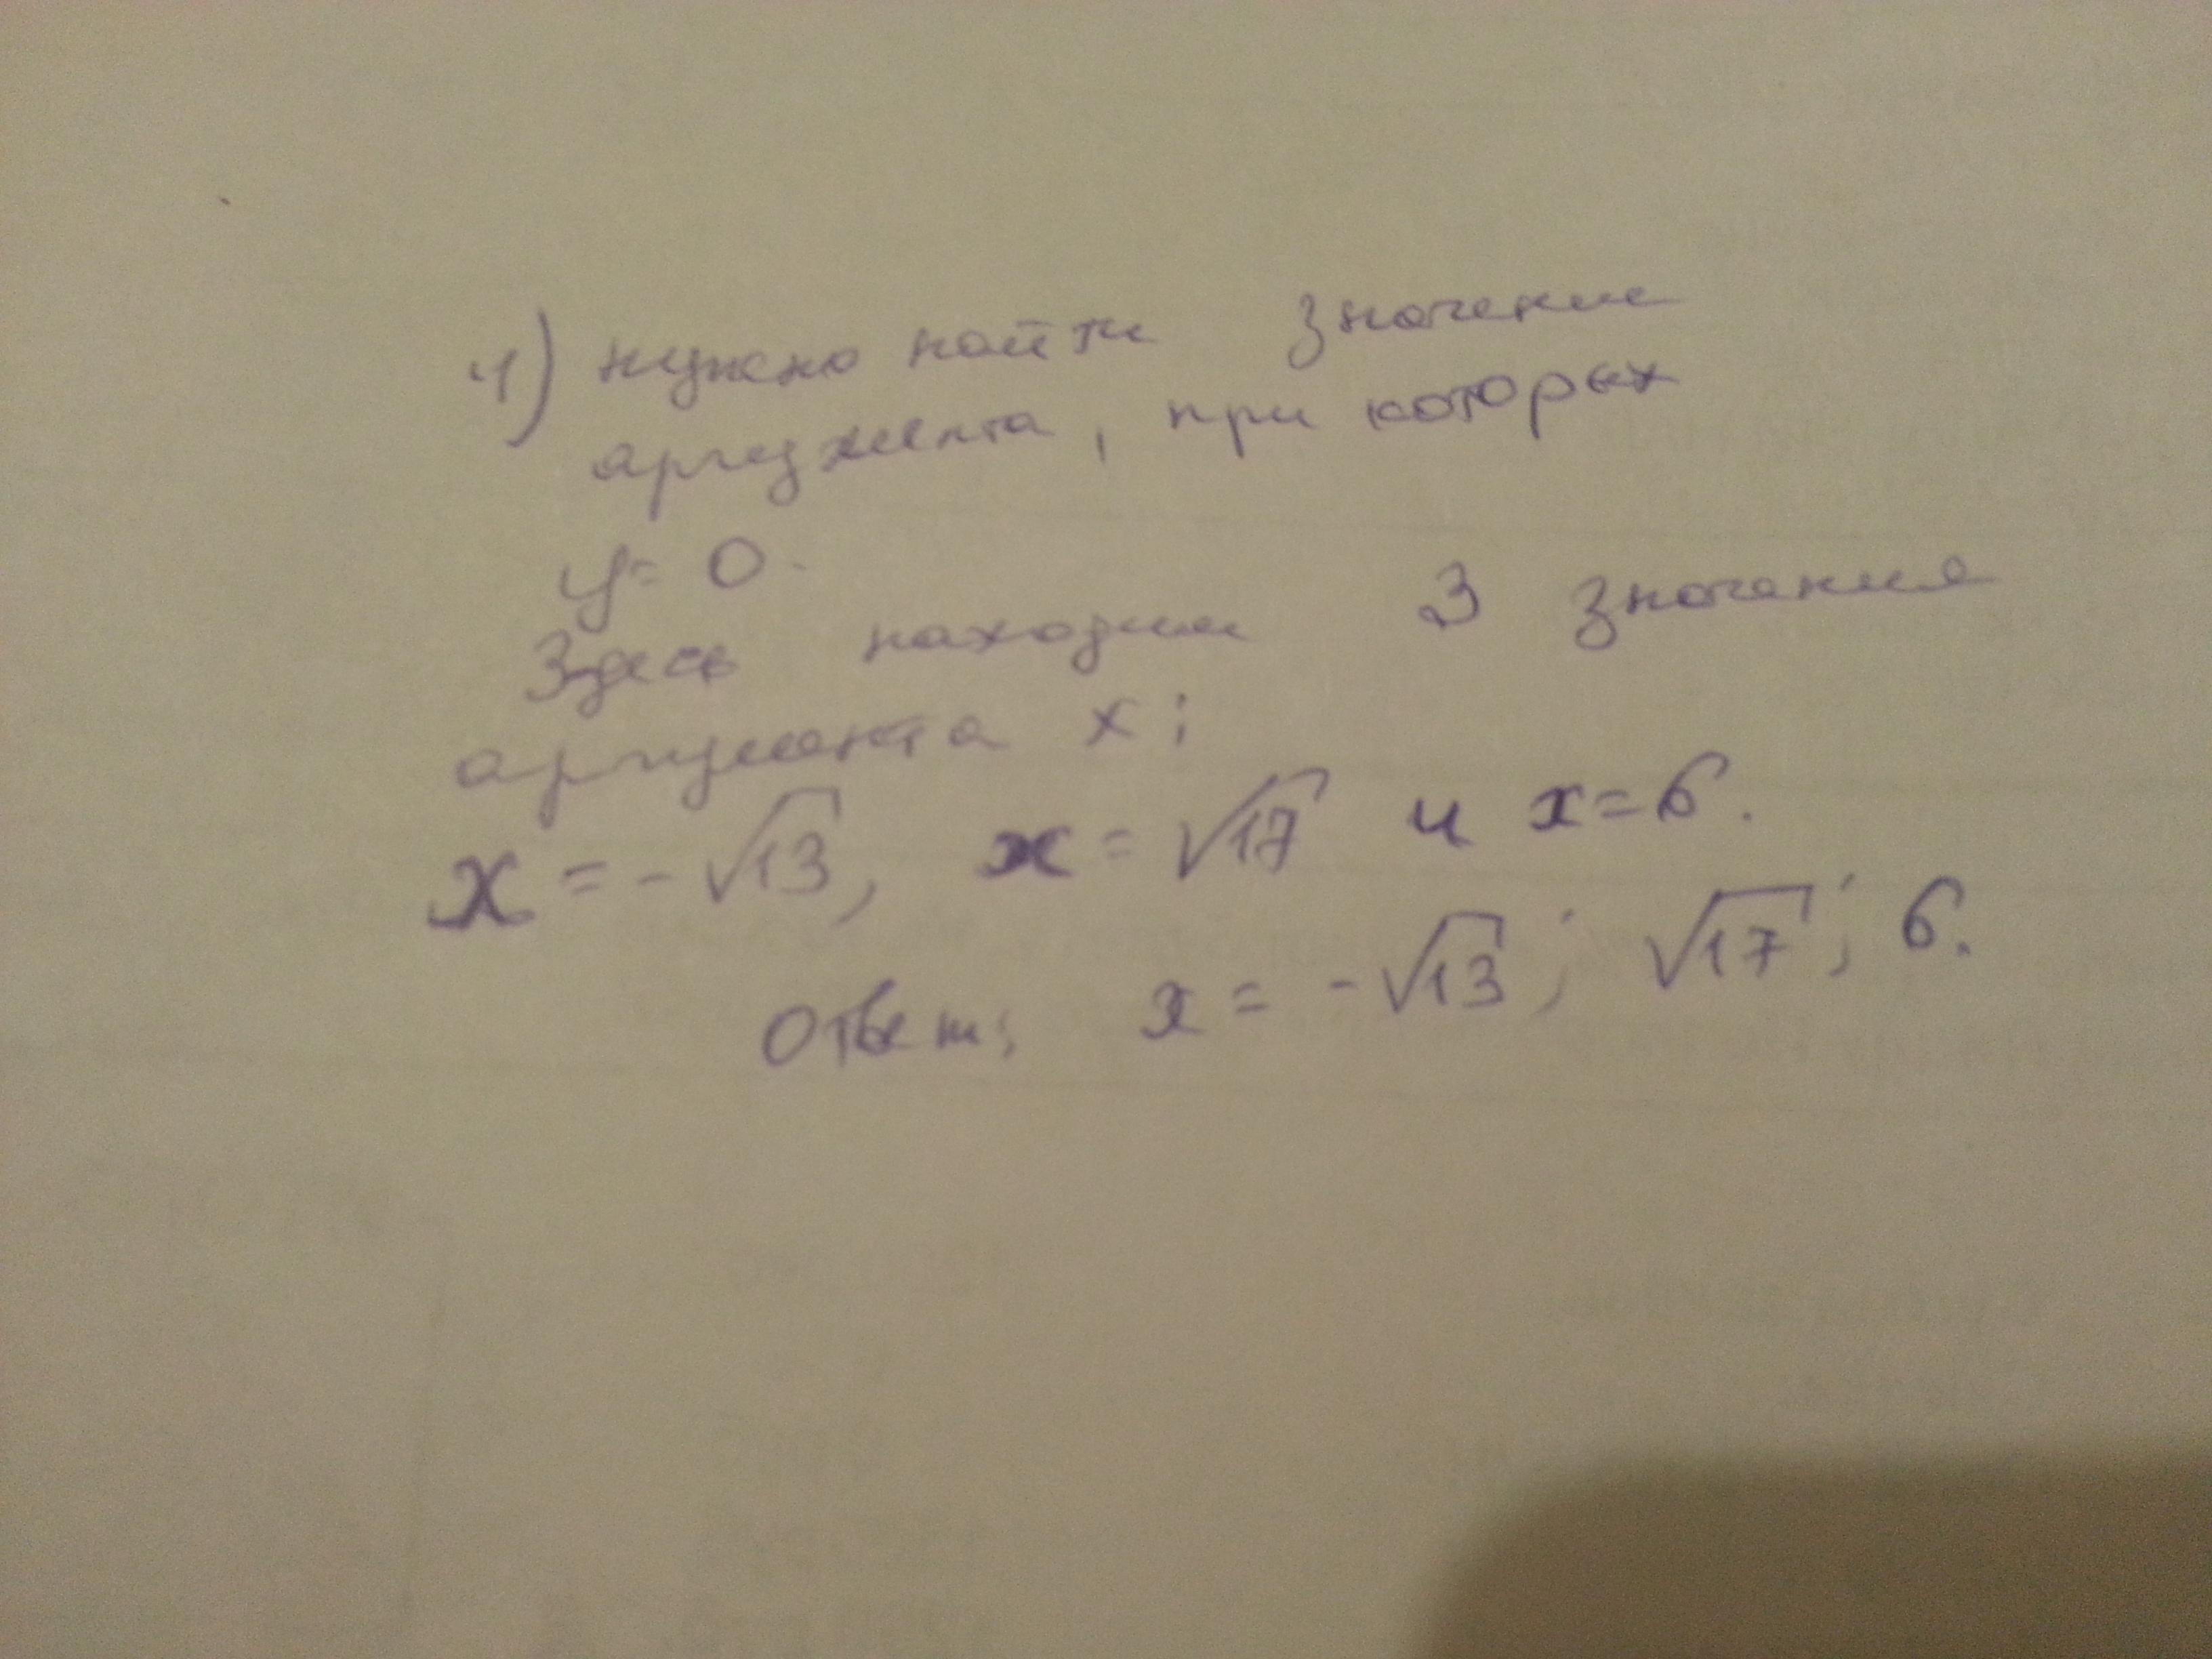 1) нужно найти значение
аргумента, при которых
y = 0.
Здесь находим 3 значения
аргумента x:
x = -√13, x = √17 и x = 6.
Ответ: x = -√13; √17; 6.